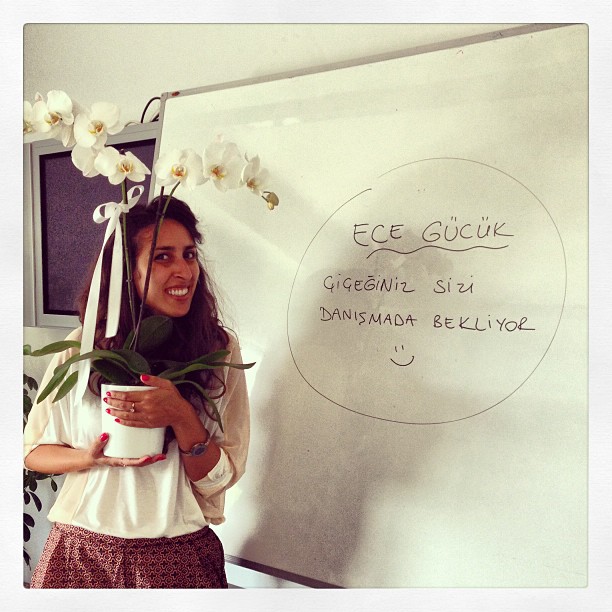 ECE GÜCÜK
ÇİÇEĞİNİZ SİZİ
DANIŞMADA BEKLİYOR